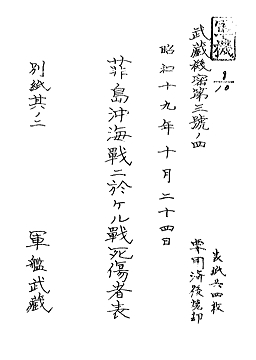 軍機
1/10
武蔵機密第三號ノ四
昭和十九年十月二十四日
表紙共四枚
要用済後焼却
菲島沖海戰ニ於ケル戰死傷者表
別紙其ノ二
軍艦武蔵